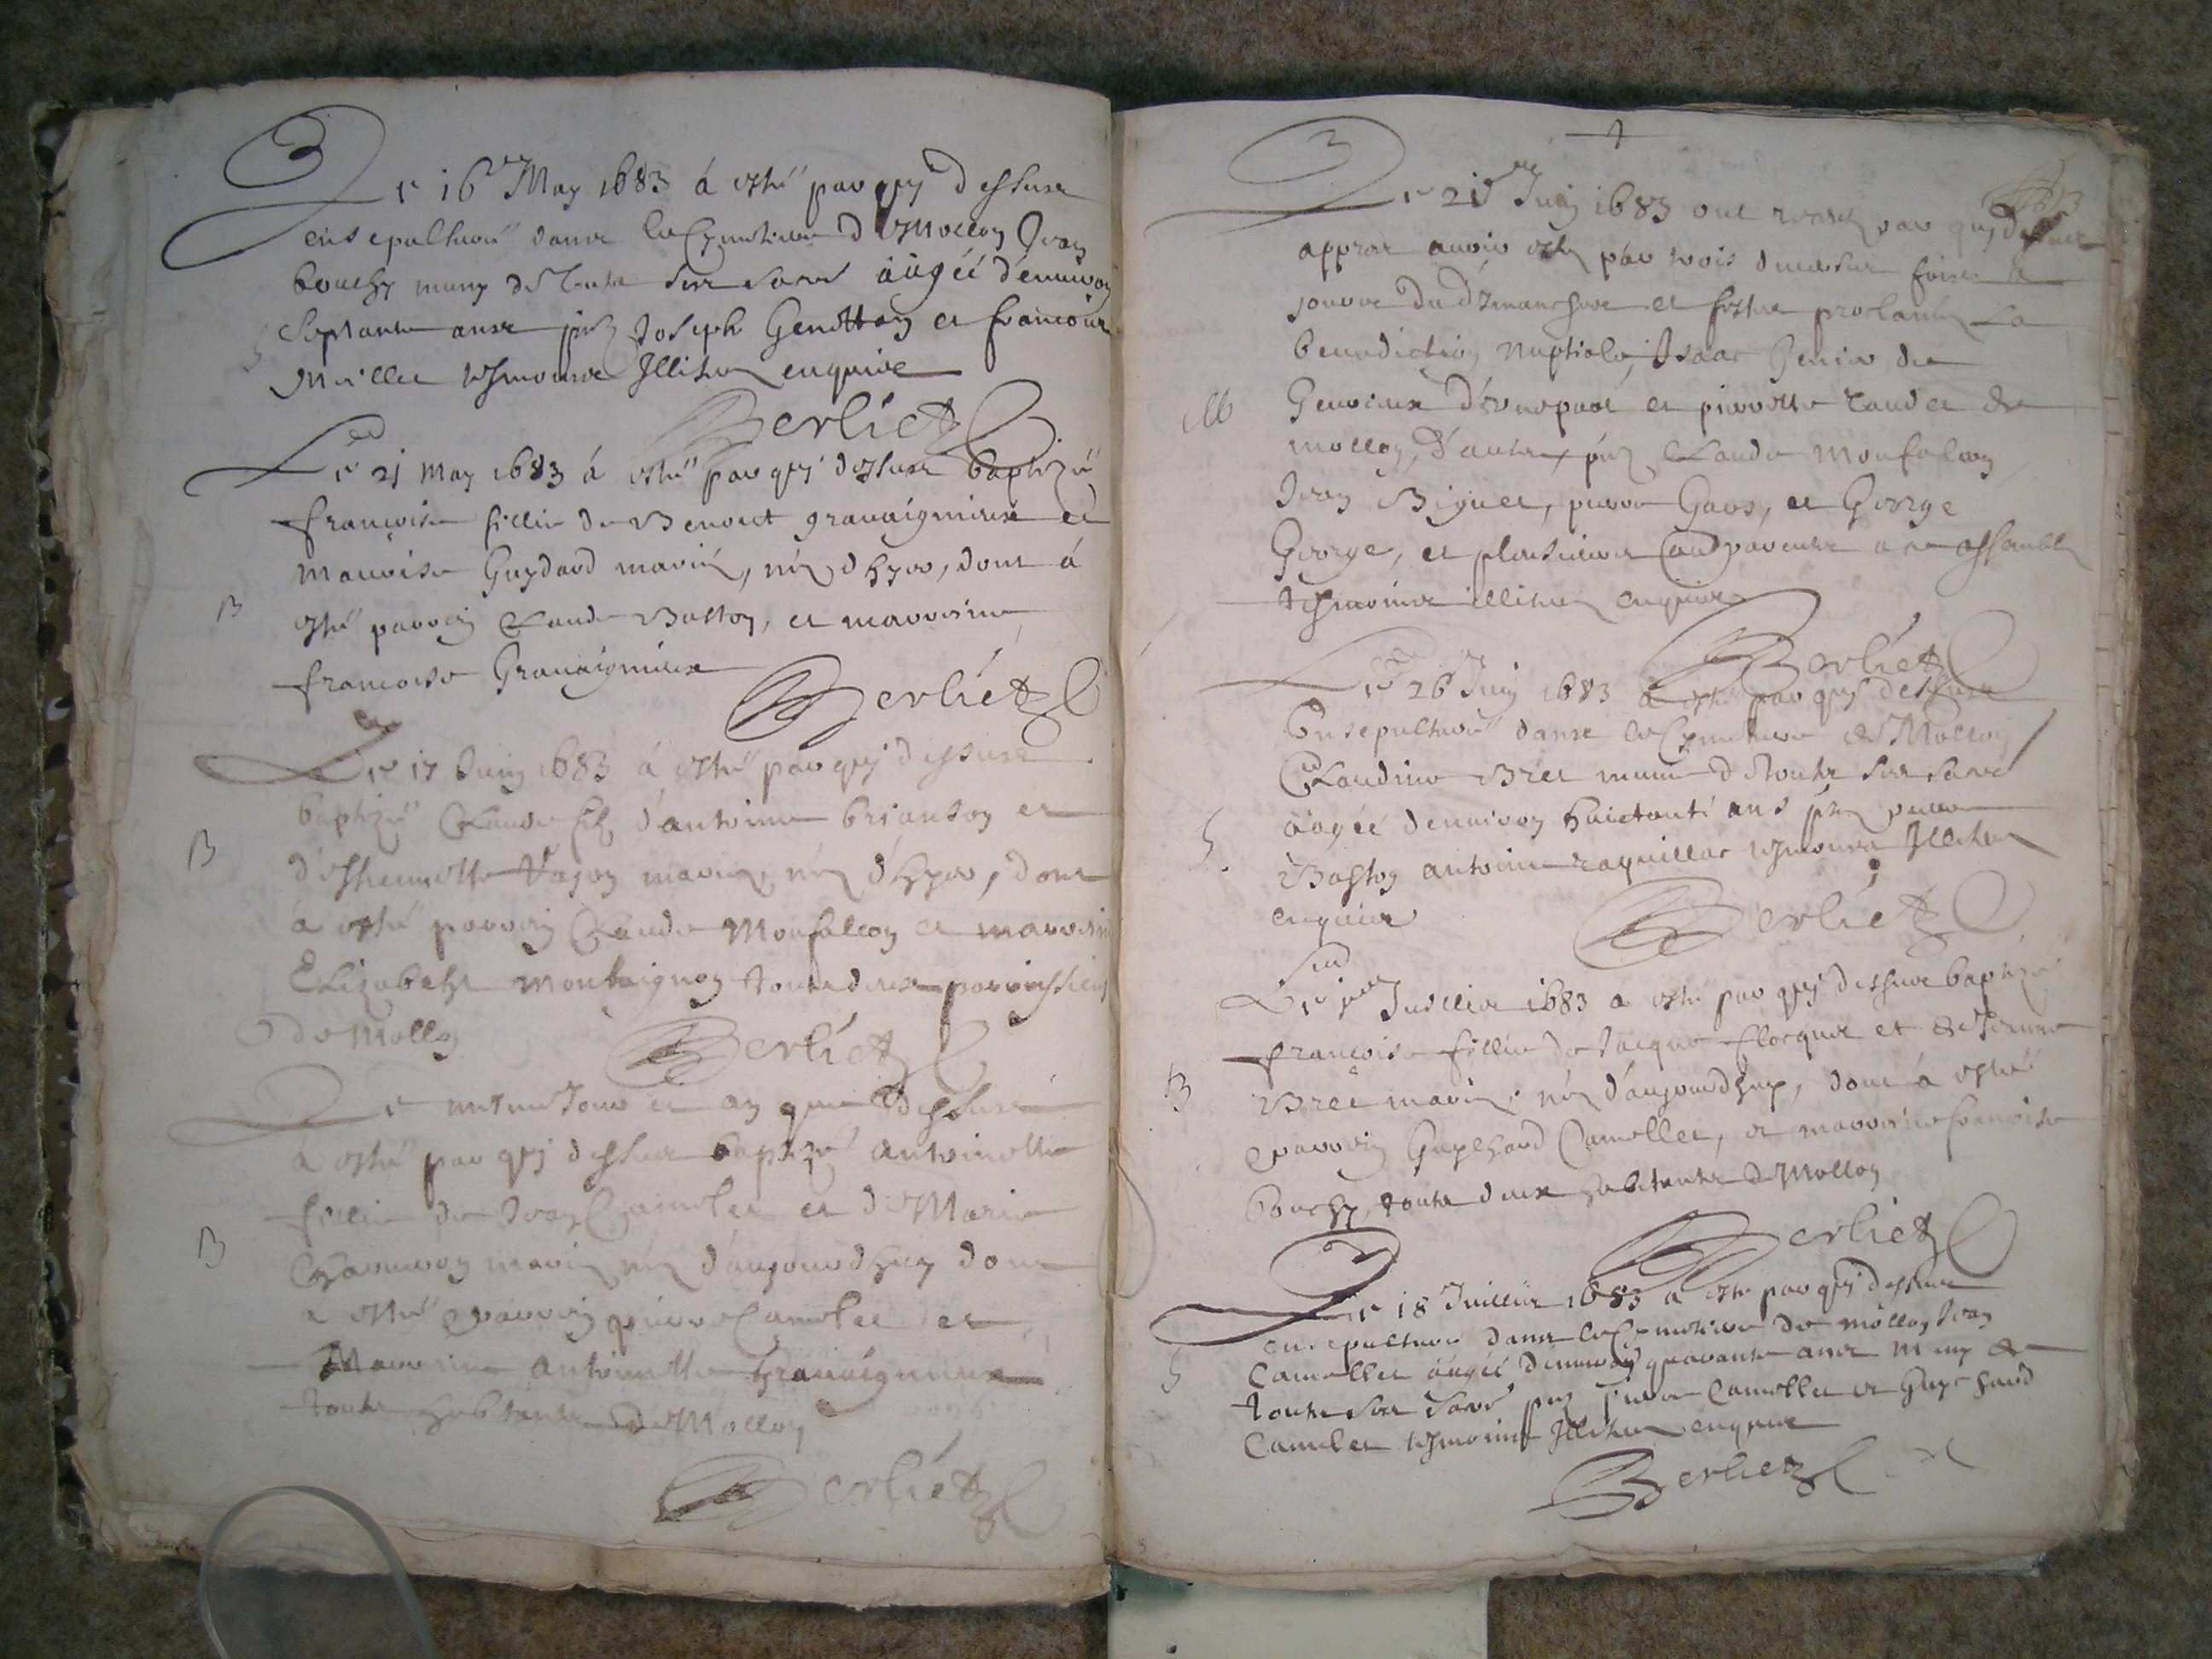 Le 16e May 1683 á esté par quj dessus
ensepulturé dans le Cymetiere de Mollon Jean
bouchy muny de touts ses Sacre äagéé d'environ
Septante ans pñz Joseph Genetton et francois
Meillet tesmoins Illiterez enquire
Berliet
Le 21 May 1683 á esté par quj dessus baptizé
françoise fillie de Benoict gravaignieux et
S
maurise Guydard mariéz, néz d'hyer, dont á
B
esté parrein Claude Baston, et marreine
francoise Gravaignieux
Berliet
Le 17 Juin 1683 á esté par quj dessus
baptizé Claude filz d'antoine brianson et
B
d'Estiennette Vajon mariéz, néz d'hyer, dont
a esté parrein Claude Monfalcon et marreine
Elizabeth montaignon touts deux parroissiens
de Mollon
Berliet
Le mesme Jour et an que dessus
a esté par quj dessus baptizé antoinette
fillie de Jean Camelet et de Marie
B
mariéz néz d'aujourdhuy dont
a esté parrein pierre Camelet et
Marreine antoinette Gravaignieux
touts habitants de Mollon
Berliet
Le 21e Juin 1683 ont receu par quj dessus
appres avoir estez par trois diverses foires a
jouvr du dymanches et festes proclaméz La
benediction nuptiale, Isaac Genin de
M
d'une part et pierrette de
mollon, d'autre, pñz Claude Monfalcon
Jean Biguet, pierre Gaos, et George
George, et plusieurs parents a ce assemblez
tesmoins illiterez enquire
Berliet
Le 26 Juin 1683 a esté par quj dessus
Ensepulturé dans le Cymetiere de Mollon
Claudine Bret munie de touts ses Sacre
S.
äagéé d'environ huictante ans pñz pierre
Baston antoine raquillat tesmoins Illiterez
enquire
Berliet
Le jer Juillier 1683 a esté par quj dessus baptizé
françoise fillie de Jacque flocquet et de Jeanne
B
Bret mariéz, néz d'aujourdhuy, dont á esté
parrein Guychard Camellet, et marreine francoise
bouchy, touts deux habitants de Mollon
Berliet
Le 18 Juillier 1683 a esté par quj dessus
ensepulturé dans le Cymetiere de mollon Jean
S
Camellet äagéé d'environ quarante ans muny de
touts ses Sacre pñz pierre Camellet et Guychard
Camelet tesmoins Illiterez enquire
Berliet